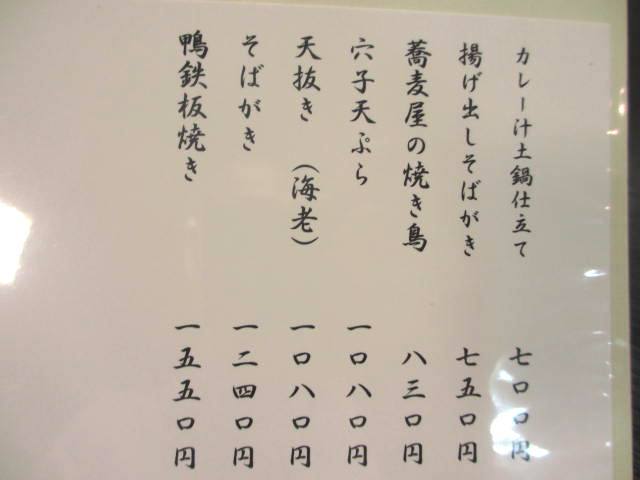 カレー汁土鍋仕立て 七〇〇円
揚げ出しそばがき 七五〇円
蕎麦屋の焼き鳥 八三〇円
穴子天ぷら 一〇八〇円
天抜き (海老) 一〇八〇円
そばがき 一二四〇円
鴨鉄板焼き 一五五〇円